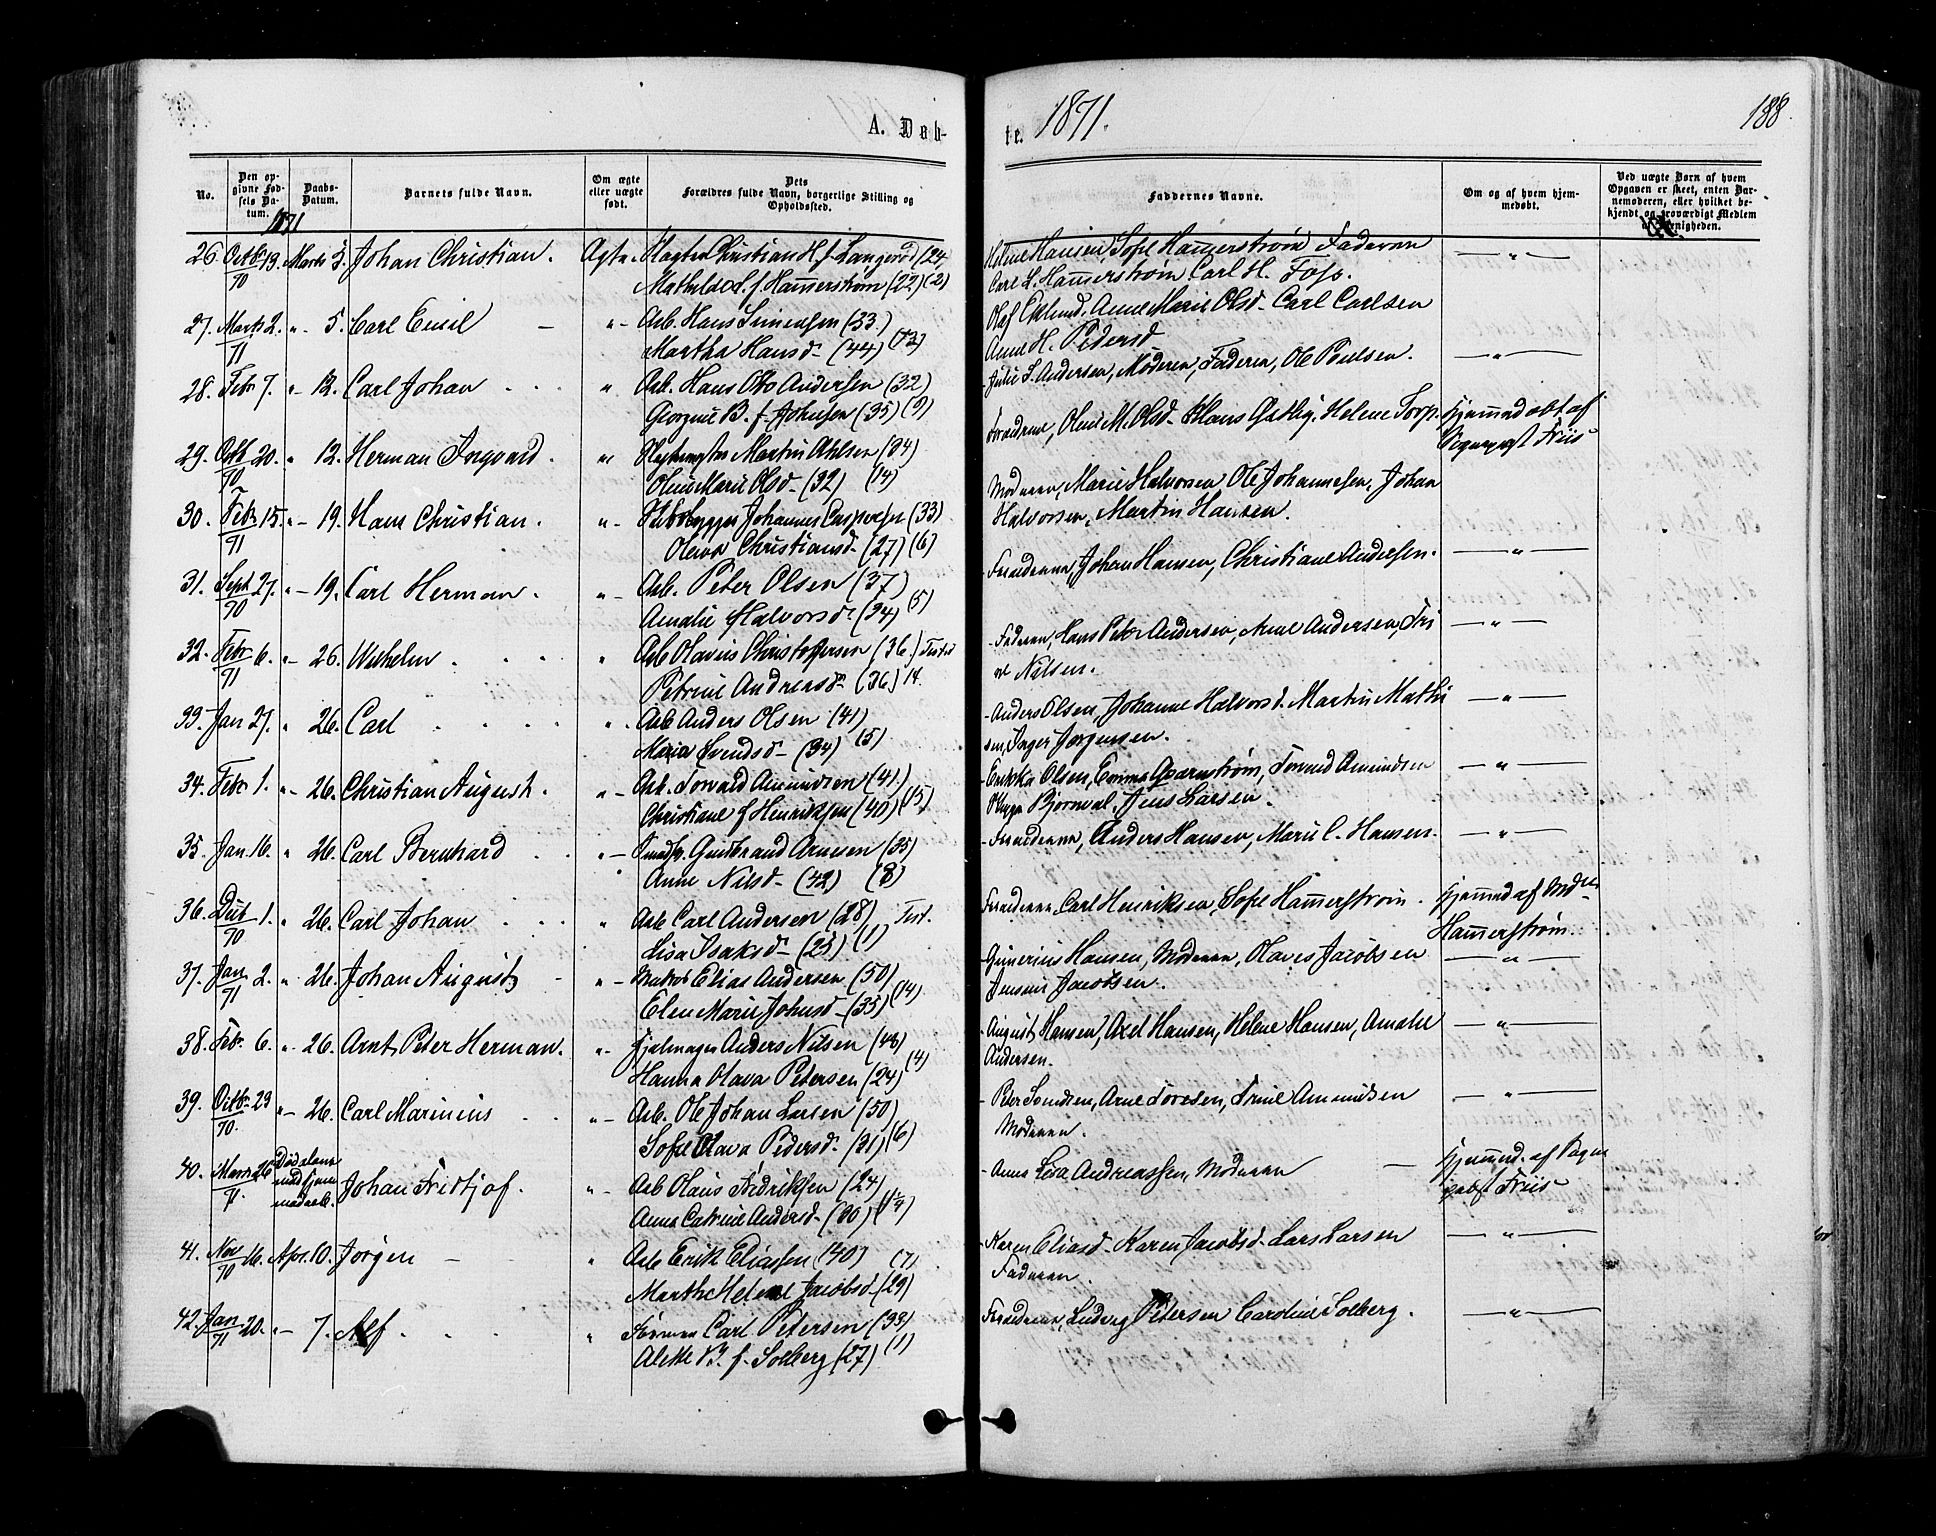 188.
A. Døb-
te. 1871.
No.
Den op-
givne Fød-
sels Da-
tum.
Daabs-
Datum.
Barnets fulde Navn.
Om ægte
eller uægte
født.
Dets
Forældres fulde Navn, borgerlige Stilling og
Opholdssted.
Faddernes Navne.
Om og af hvem hjem-
medøbt.
Ved uægte Børn af hvem
Opgaven er skeet, enten Bar-
nemoderen, eller hvilket be-
kjendt og troværdigt Medlem
af Menigheden.
1871
26 Octbr 13. Marts 5. Johan Christian. Ægte. Christian H. f. Langerød (24
70 Mathilde f. Hamerstrøm (22) (2)
Helene Hansen, Sofie Hamerstrøm Faderen
Carl L. Hamerstrøm Carl H. Foss.
27. Marts 2. " - 5. Carl Emil - " - Arb. Hans Simensen (33.)
71 Martha Hansd - (44) (13)
Olaf Eklund. Anne Marie Olsd - Carl Carlsen
Anne H. Pedersd
28. Febr 7. " - 12. Carl Johan " Arb. Hans Otto Andersen (32)
Georgine B. f. Johnsen (35) (9)
- Julie S. Andersen, Moderen, Faderen, Ole Poulsen. - " -
29. Octb 20. " 12. Herman Ingvard. " Martin Ahlsen (34)
70 Oline Marie Olsd - (32) (14)
Forældrene, Oline M. Olsd - Hans Gotlig. Helene Torp. Hjemmedøbt af
Friis
30. Febr 15. " - 19. Hans Christian. " - Skibbygger Johannes Caspersen (33)
71 Oleva Christiansd - (27) (6)
Moderen, Marie Halvorsen Ole Johannesen, Johan
Halvorsen, Martin Hansen.
31. Sept 27. " - 19. Carl Herman. " - Arb. Peter Olsen (37)
70 Amalie Halvorsd - (34) (5)
- Forældrene, Johan Hansen, Christiane Andersen. - " -
32. Febr 6. " - 26. Wilhelm. " Arb Olavus Christofersen (36.)
71 Petrine Andreasd - (36) 14.
- Faderen, Hans Peter Andersen, Anne Andersen, Tri
ne Nilsen. - " -
33. Jan 27. " 26. Carl " - Arb Anders Olsen (41)
Maria Svendsd - (34) (5)
- Anders Olsen, Johanne Halvorsd. Martin Mathi
sen, Inger Jørgensen. - " -
34. Febr 1. " - 26. Christian August. " - Arb. Torvald Amundsen (41)
Christiane f. Henriksen (40) (15)
- Erikka Olsen, Emma Qvarnstrøm, Torvald Amundsen
Bjornvol. Jens Larsen. - " -
35. Jan 16. " 26. Carl Bernhard " - Gulbrand Arnesen (35)
Anne Nilsd - (42) (8)
- Forældrene, Anders Hansen, Marie C. Hansen. - " -
36. Decb 1. " 26. Carl Johan " Arb Carl Andersen (28) Test.
70 Lisa Isaksd - (25) (1)
Forældrene, Carl Henriksen, Sofie Hamerstrøm. Hjemmed af Md
Hamerstrøm.
37. Jan 2. " 26. Johan August - " - Matros Elias Andersen (50)
71 Elen Marie Johnsd - (35) (14)
- Gunerius Hansen, Moderen, Olaves Jacobsen
Jensine Jacobsen. - " -
38. Febr. 6. " 26. Arnt Peter Herman. " - Hjulmager Anders Nilsen (48)
Hanna Olava Petersen (24) (4)
- August Hansen, Axel Hansen, Helene Hansen, Amalie
Andersen. - " -
39. Octbr 23 " - 26. Carl Marinius " - Arb. Ole Johan Larsen (50)
70. Sofie Olava Pedersd. (31) (6)
- Peter Svendsen, Arne Toresen, Trine Amundsen
Moderen. - " -
40. Marts 26 Død alene
med hjem-
medaab. Johan Fridtjof. " - Arb Olaus Fredriksen (24)
71. Anna Catrine Andersd - (30)
- Anna Lisa Andreassen, Moderen - Hjemmed. af
Friis
41. Nov 16. Apr. 10. Jørgen - " Arb Erik Eliassen (40) (7)
70 Marthe Helene Jacobsd - (29)
- Karen Eliasd - Karen Jacobsd - Lars Larsen
Faderen. - " -
42. Jan 20. " - 7. Alf. " Tømmer Carl Petersen (33)
71 Alette B. f. Solberg (27) (1)
Forældrene, Ludvig Petersen Caroline Solberg. - " -